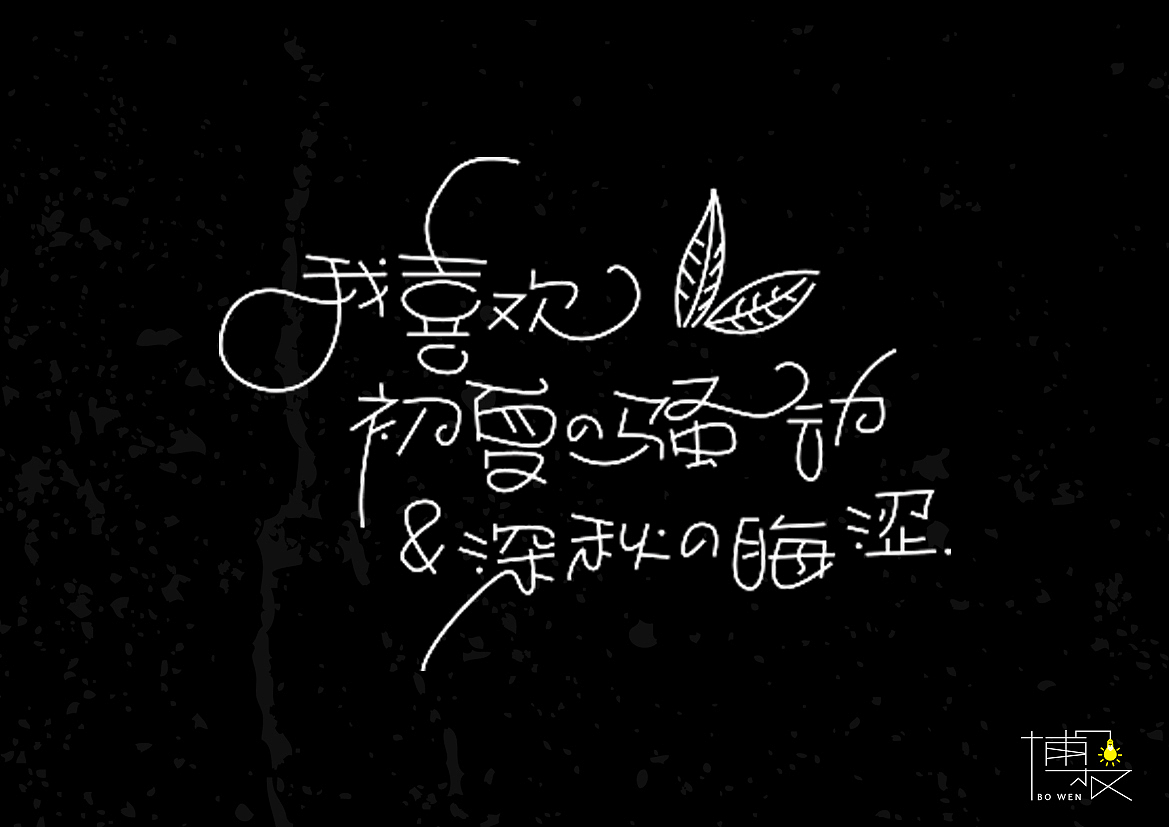 我喜欢
初夏の骚动
&深秋の晦涩.
博文
BO WEN